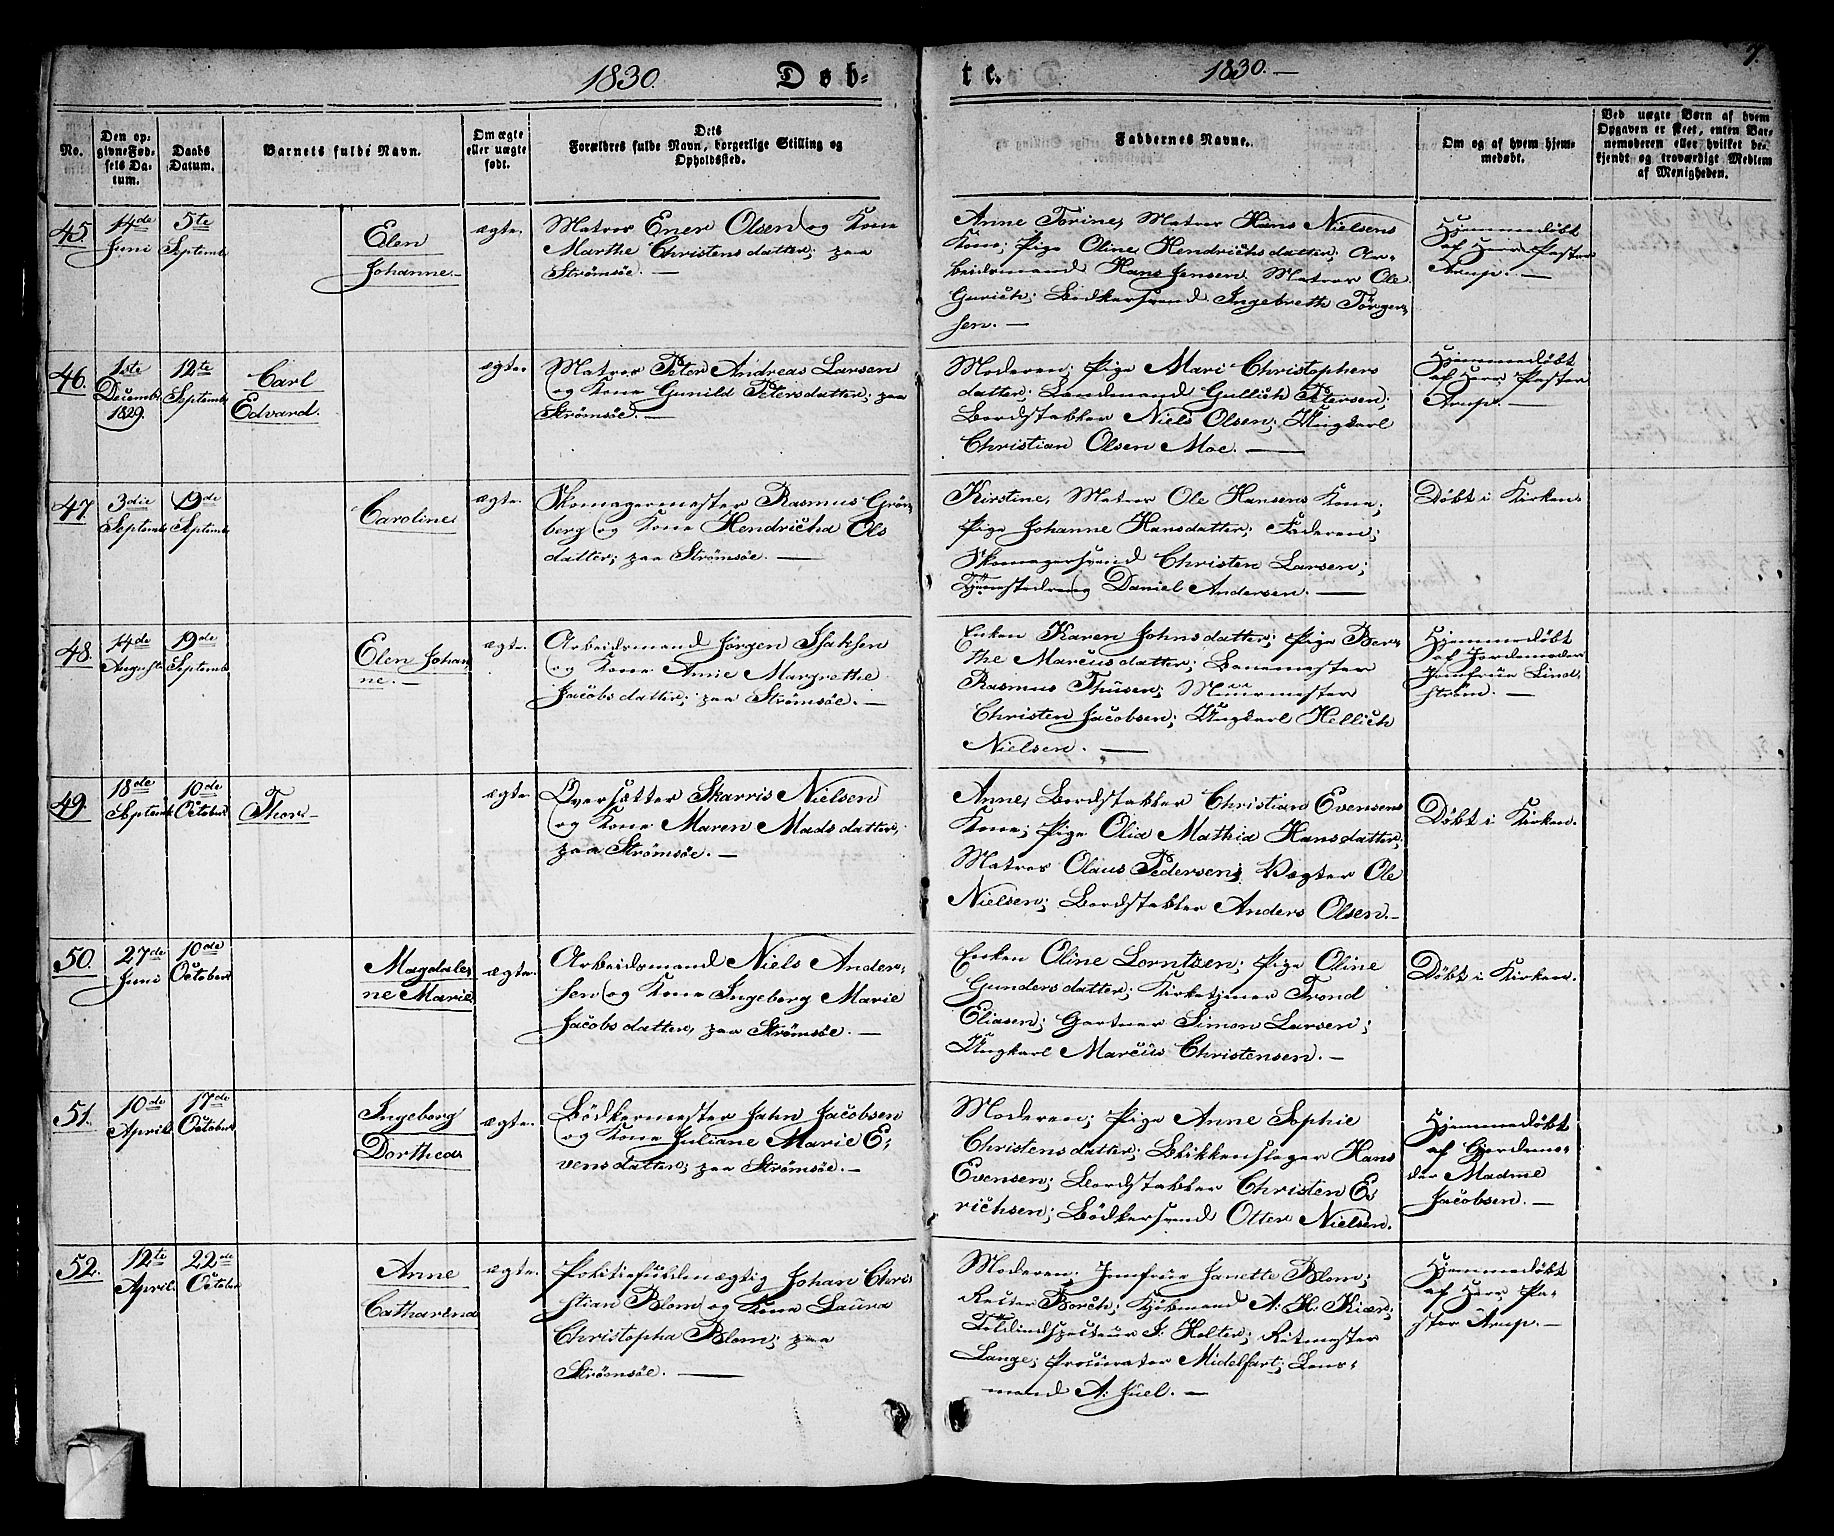 1830. Døb-
te. 1830. — 7.
No.
Den op-
givne Fød-
sels Da-
tum.
Daabs
Datum.
Barnets fulde Navn.
Om ægte
eller uægte
født.
Dets
Forældres fulde Navn, borgerlige Stilling og
Opholdssted.
Faddernes Navne.
Om og af hvem hjem-
medøbt.
Ved uægte Børn af hvem
Opgaven er skeet, enten Bar-
nemoderen eller hvilket be-
kjendt og troværdigt Medlem
af Menigheden.
45.
14de
Juni
5te
Septemb
Elen
Johanne.
ægte.
Matros Ener Olsen og Kone
Marthe Christensdatter; paa
Strømsøe. —
Anne Torine, Matros Hans Nielsens
Kone; Pige Oline Hendrichsdatter; Ar-
beidsmand Hans Jensen; Matros Ole
Gurich; Bødkersvend Ingebreth Törger-
sen. —
Hjemmedøbt
af Herr Pastor
Arup. —
46.
1ste
Decemb
1829.
12te
Septemb
Carl
Edvard.
ægte.
Matros Peter Andreas Larsen
og Kone Gunild Petersdatter; paa
Strømsøe. —
Moderen; Pige Mari Christophers
datter; Landmand Gullich Petersen;
Bordstabler Niels Olsen; Ungkarl
Christian Olsen Moe. —
Hjemmedøbt
af Herr Pastor
Arup. —
47.
3die
Septemb
19de
Septemb
Caroline
ægte.
Skomagermester Rasmus Grön-
berg og Kone Hendricha Ols
datter; paa Strømsøe. —
Kirstine, Matros Ole Hansens Kone;
Pige Johanne Hansdatter; Faderen;
Skomagersvend Christen Larsen;
Tjenestedreng Daniel Andersen. —
Døbt i Kirken.
48.
14de
August
19de
Septemb
Elen Johan
ne. —
ægte.
Arbeidsmand Jørgen Isaksen
og Kone Anne Margrethe
Jacobsdatter; paa Strømsøe. —
Enken Karen Johnsdatter; Pige Ber-
the Marcusdatter; Banemester
Rasmus Thüsen; Muurmester
Christen Jacobsen; Ungkarl Hellich
Nielsen. —
Hjemmedøbt
af Jordemoder
Jomfrue Lind
ström. —
49.
18de
Septemb
10de
October
Thor
ægte.
Oversætter Skarris Nielsen
og Kone Maren Madsdatter;
paa Strømsøe. —
Anne, Bordstabler Christian Evensens
Kone; Pige Olia Mathia Hansdatter;
Matros Olaus Pedersen; Vægter Ole
Nielsen; Bordstabler Anders Olsen. —
Døbt i Kirken.
50.
27de
Juni
10de
October
Magdale-
ne Marie
ægte.
Arbeidsmand Niels Ander-
sen og Kone Ingeborg Marie
Jacobsdatter, paa Strømsøe. —
Enken Oline Lorntsen; Pige Oline
Gundersdatter; Kirketjener Trond
Eliasen; Gartner Simon Larsen;
Ungkarl Marcüs Christensen. —
Døbt i Kirken.
51.
10de
April
17de
October
Ingeborg
Dorthea
ægte.
Bødkermester Jahn Jacobsen
og Kone Juliane Marie E-
vensdatter; paa Strømsøe. —
Moderen; Pige Anne Sophie
Christensdatter; Blikkenslager Hans
Evensen; Bordstabler Christen E-
richsen; Bødkersvend Otter Nielsen.
Hjemmedøbt
af Gjordemo-
der Madme
Jacobsen. —
52.
12te
April.
22de
October
Anne
Catharina
ægte.
Politiefuldmægtig Johan Chri-
stian Blom og Kone Laura
Christopha Blom; paa
Strömsöe. —
Moderen; Jomfrue Janette Blom;
Rector Borch; Kjöbmand A. H. Kiær;
Toldinspecteur J. Holter; Ritmester
Lange; Procurator Midelfart; Lens-
mand A. Juel. —
Hjemmedøbt
af Herr Pa-
stor Arup. —